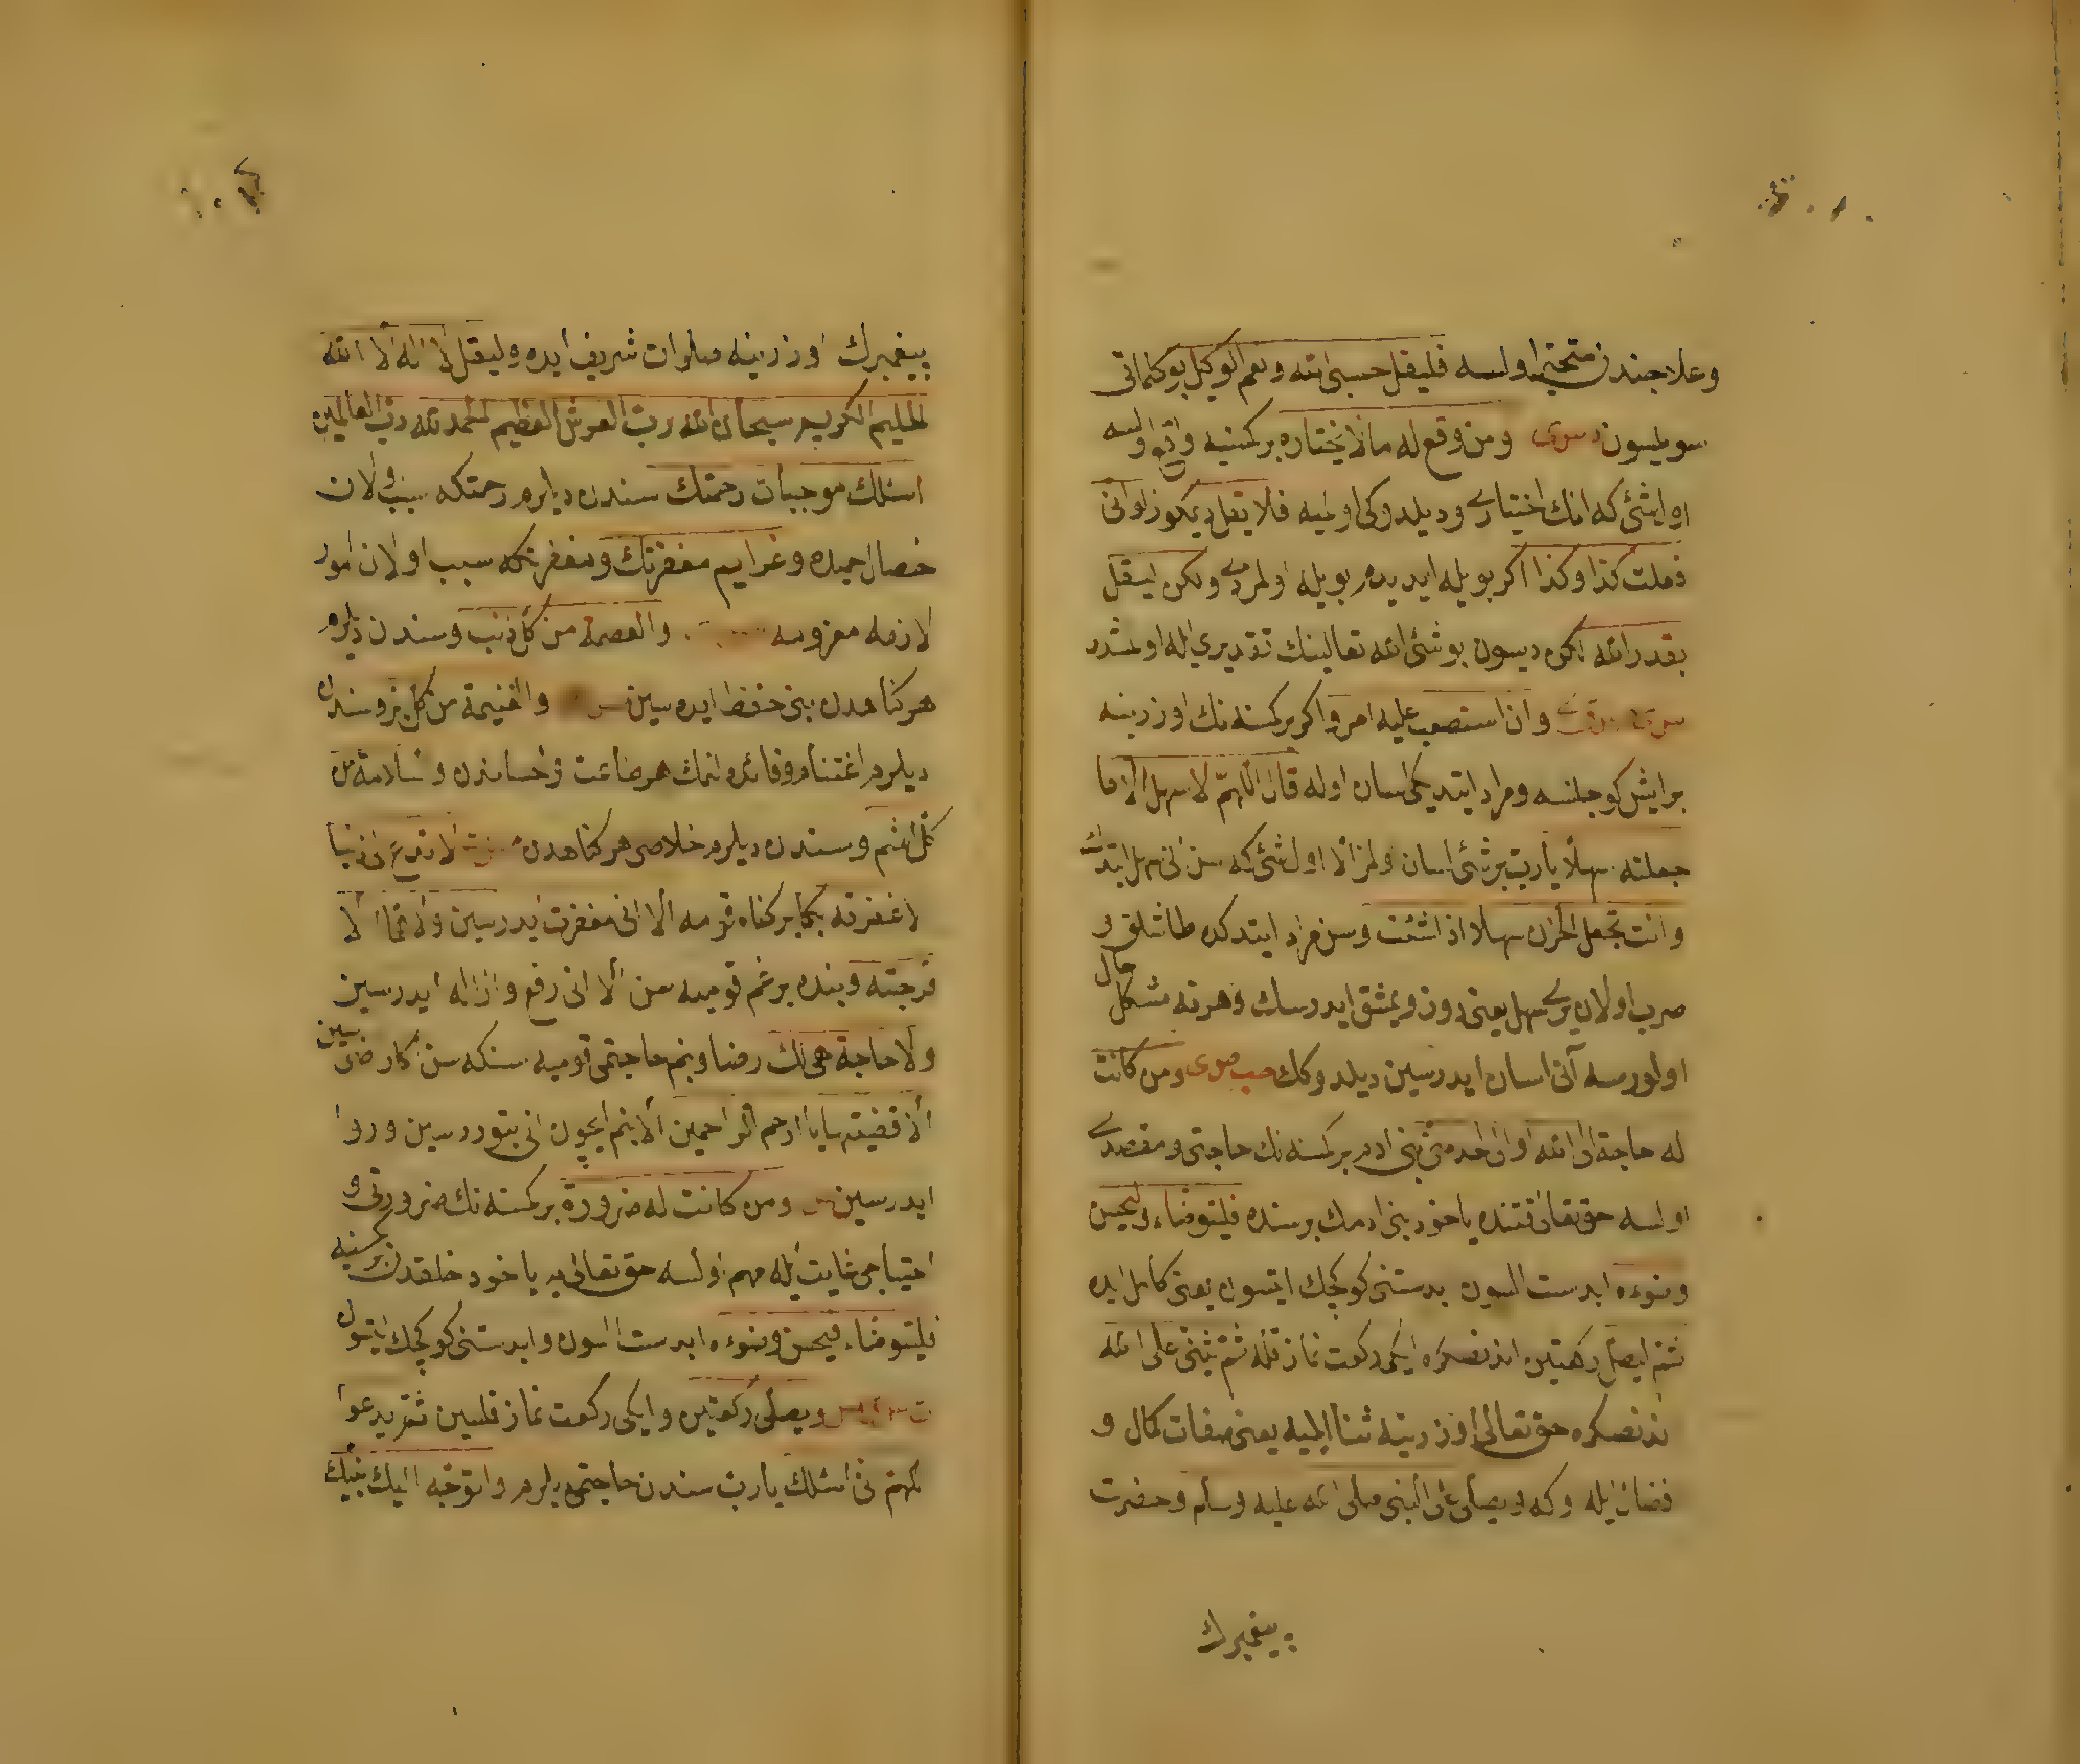 وعلاجندن متحیر اولسه فلیقل حسبی الله ونعم الوکیل بو کلماتی
سویلسون ومن وقع له ما لا یختاره بر کمسنیه واقع اولسه
او ایشئ که انك اختیاری ودیلدوکی اولمیه فلا یقل دیمکوز لو انی
فعلت کذا وکذا اکر بویله ایدیدم بویله اولمزدی ولکن لیقل
بقدر الله لکن دیسون بو شئ الله تعالینك تقدیری ایله اولمشدر
وان استصعب علیه امر واکر بر کمسنه نك اوزرینه
بر ایش کوج کلسه ومراد ایتدیکی اسان اوله قال اللهم لا سهل الا ما
جعلته سهلا یا رب بر شئ اسان اولمز الا اول شئ که سن انی سهل ایتدك
وانت تجعل الحزن سهلا اذا شئت وسن مراد ایتدکده طاشلق و
صرب اولان یری سهل یعنی دوز ویمشق ایدرسك وهر نه مشکل حال
اولورسه آنی اسان ایدرسین دیلدوکك ومن کانت
له حاجة الی الله او الی احد من بنی ادم بر کمسنه نك حاجتی ومقصدی
اولسه حق تعالی قتنده یاخود بنی ادمك برسنده فلیتوضاء ولیحسن
وضوءه ابدست السون بدستنی کوکچك ایتسون یعنی کامل ایده
ثم لیصل رکعتین اندنصکره ایکی رکعت نماز قله ثم یثنی علی الله
اندنصکره حق تعالی اوزرینه ثنا ایلیه یعنی صفات کمال و
فضائل ایله اوکه ویصلی علی النبی صلی الله علیه وسلم وحضرت
پیغمبرك
پیغمبرك اوزرینه صلوات شریف ایده ولیقل لا اله الا الله
الحلیم الکریم سبحان الله رب العرش العظیم الحمد لله رب العالمین
اسئلك موجبات رحمتك سندن دیلرم رحمتکه سبب اولان
خصال حمیده وعزایم مغفرتك ومغفرتکه سبب اولان امور
لازمه معزومه والعصمة من کل ذنب وسندن دیلرم
هر کناهدن بنی حفظ ایده سین والغنیمة من کل بر وسندن
دیلرم اغتنام وفائده انمك هر طاعت واحساندن والسلامة من
کل اثم وسندن دیلرم خلاصی هر کناهدن لا تدع لی ذنبا
الا غفرته بکا بر کناه قومه الا انی مغفرت ایدرسین ولا هما الا
فرجته وبنده بر غم قومیه سن الا انی رفع وازاله ایدرسین
ولا حاجة هی لك رضا وبنم حاجتمی قومیه سنکه سن اکا راضی سین
الا قضیتها یا ارحم الراحمین الا بنم ایچون انی بتوررسین وروا
ایدرسین ومن کانت له ضرورة بر کمسنه نك ضرورتی و
احتیاجی غایت ایله مهم اولسه حق تعالی یه یاخود خلقدن بر کمسنیه
فلیتوضاء فیحسن وضوءه ابدست السون وابدستنی کوکچك ایتسون
ویصلی رکعتین وایکی رکعت نماز قلسین ثم یدعوا
اللهم انی اسئلك یا رب سندن حاجتمی دیلرم واتوجه الیك بنبیك